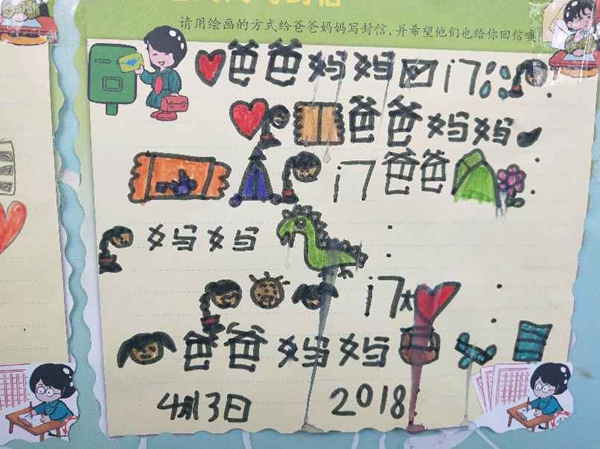 请用绘画的方式给爸爸妈妈写封信,并希望他们也给你回信噢
爸爸妈妈 17:
爸爸妈妈
17爸爸
妈妈
17
爸爸妈妈
4月3日 2018